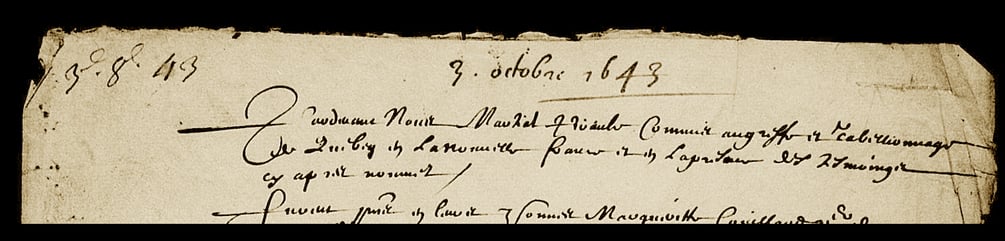 3e. 8e. 43
3. octobre 1643
Pardevant Nous Martial Piraube Commis au greffe et Tabellionnage
de Quebeq en La nouvelle france et en La presence des Tesmoings
cy apres nommez
furent en leurs personnes Marguerite